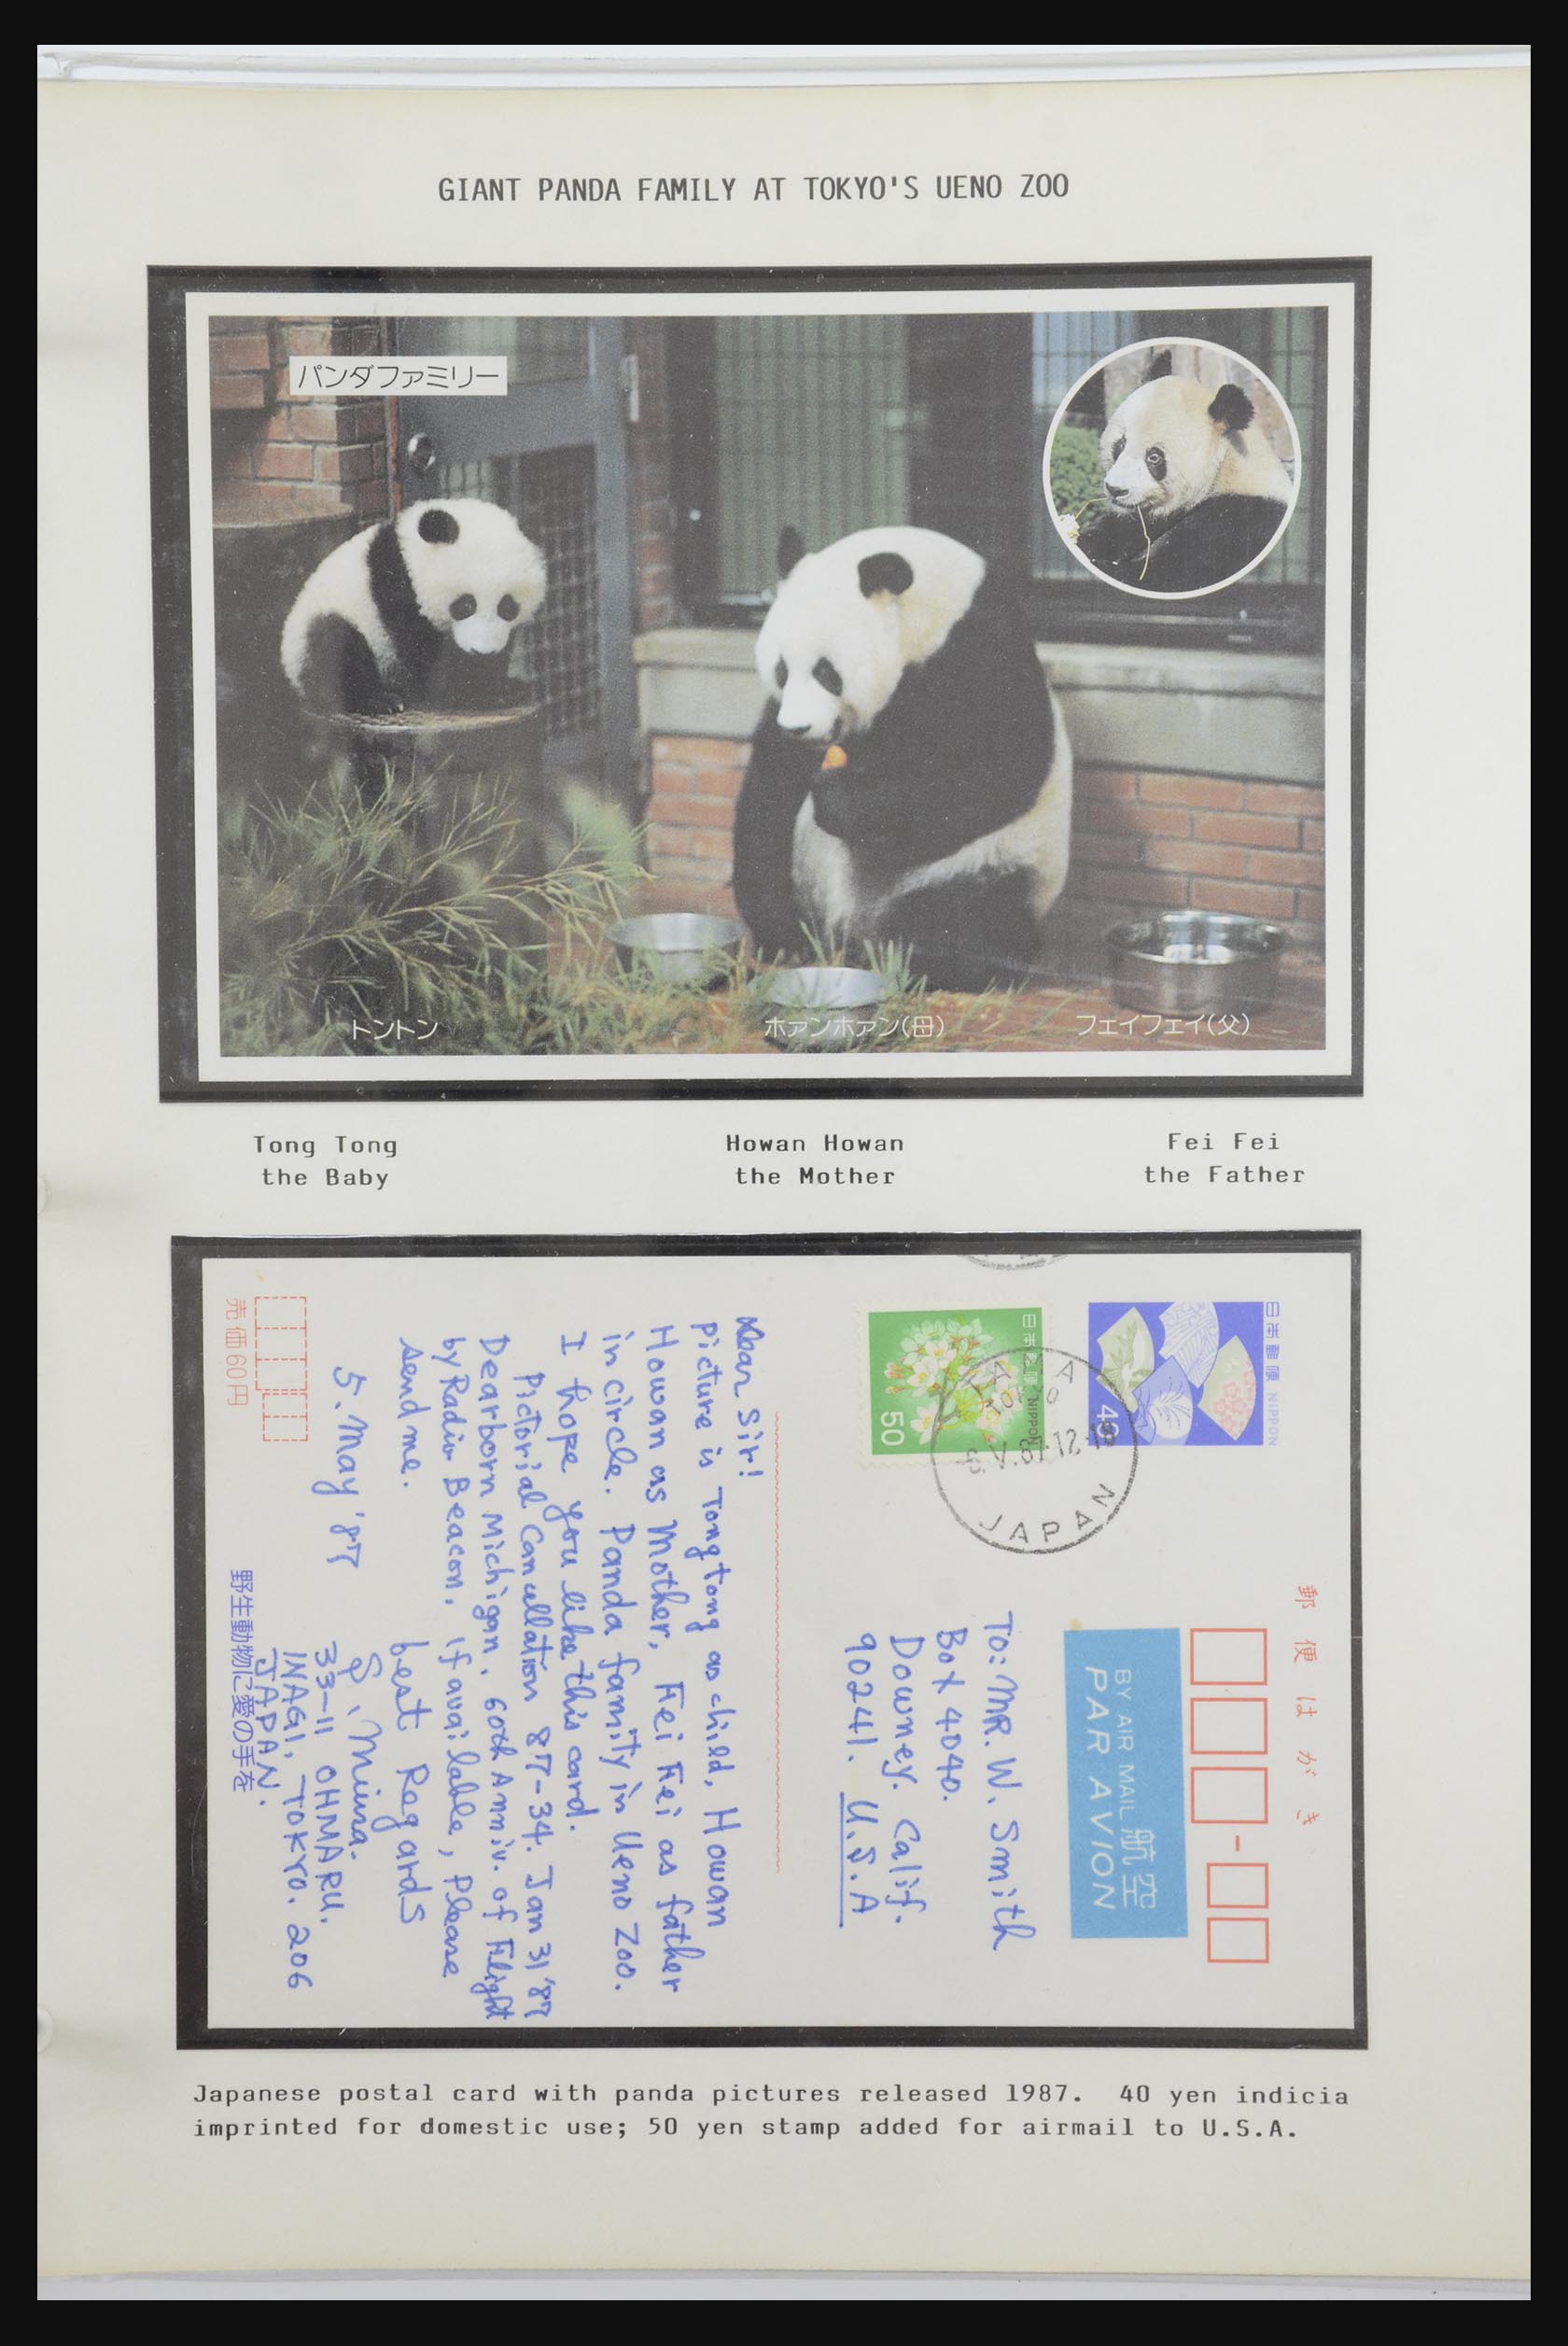 GIANT PANDA FAMILY AT TOKYO'S UENO ZOO
パンダファミリー
トントン
ホァンホァン(母)
フェイフェイ(父)
Tong Tong
the Baby
Howan Howan
the Mother
Fei Fei
the Father
日本郵便 NIPPON
40
日本郵便 NIPPON
50
TOKYO
JAPAN
郵便はがき
BY AIR MAIL 航空
PAR AVION
To: MR. W. Smith
Box 4040.
Downey. Calif.
90241. U.S.A
Dear Sir!
Picture is Tong tong as child, Howan
Howan as Mother, Fei Fei as father
in circle. Panda family in Ueno Zoo.
I hope you like this card.
Pictorial Cancellation 87-34. Jan 31 '87
Dearborn Michigan. 60th Anniv. of Flight
by Radio Beacon, if available, Please
send me.
best Regards
5. May '87
S. Miura.
33-11 OHMARU.
INAGI, TOKYO. 206
JAPAN.
売価60円
野生動物に愛の手を
Japanese postal card with panda pictures released 1987. 40 yen indicia
imprinted for domestic use; 50 yen stamp added for airmail to U.S.A.